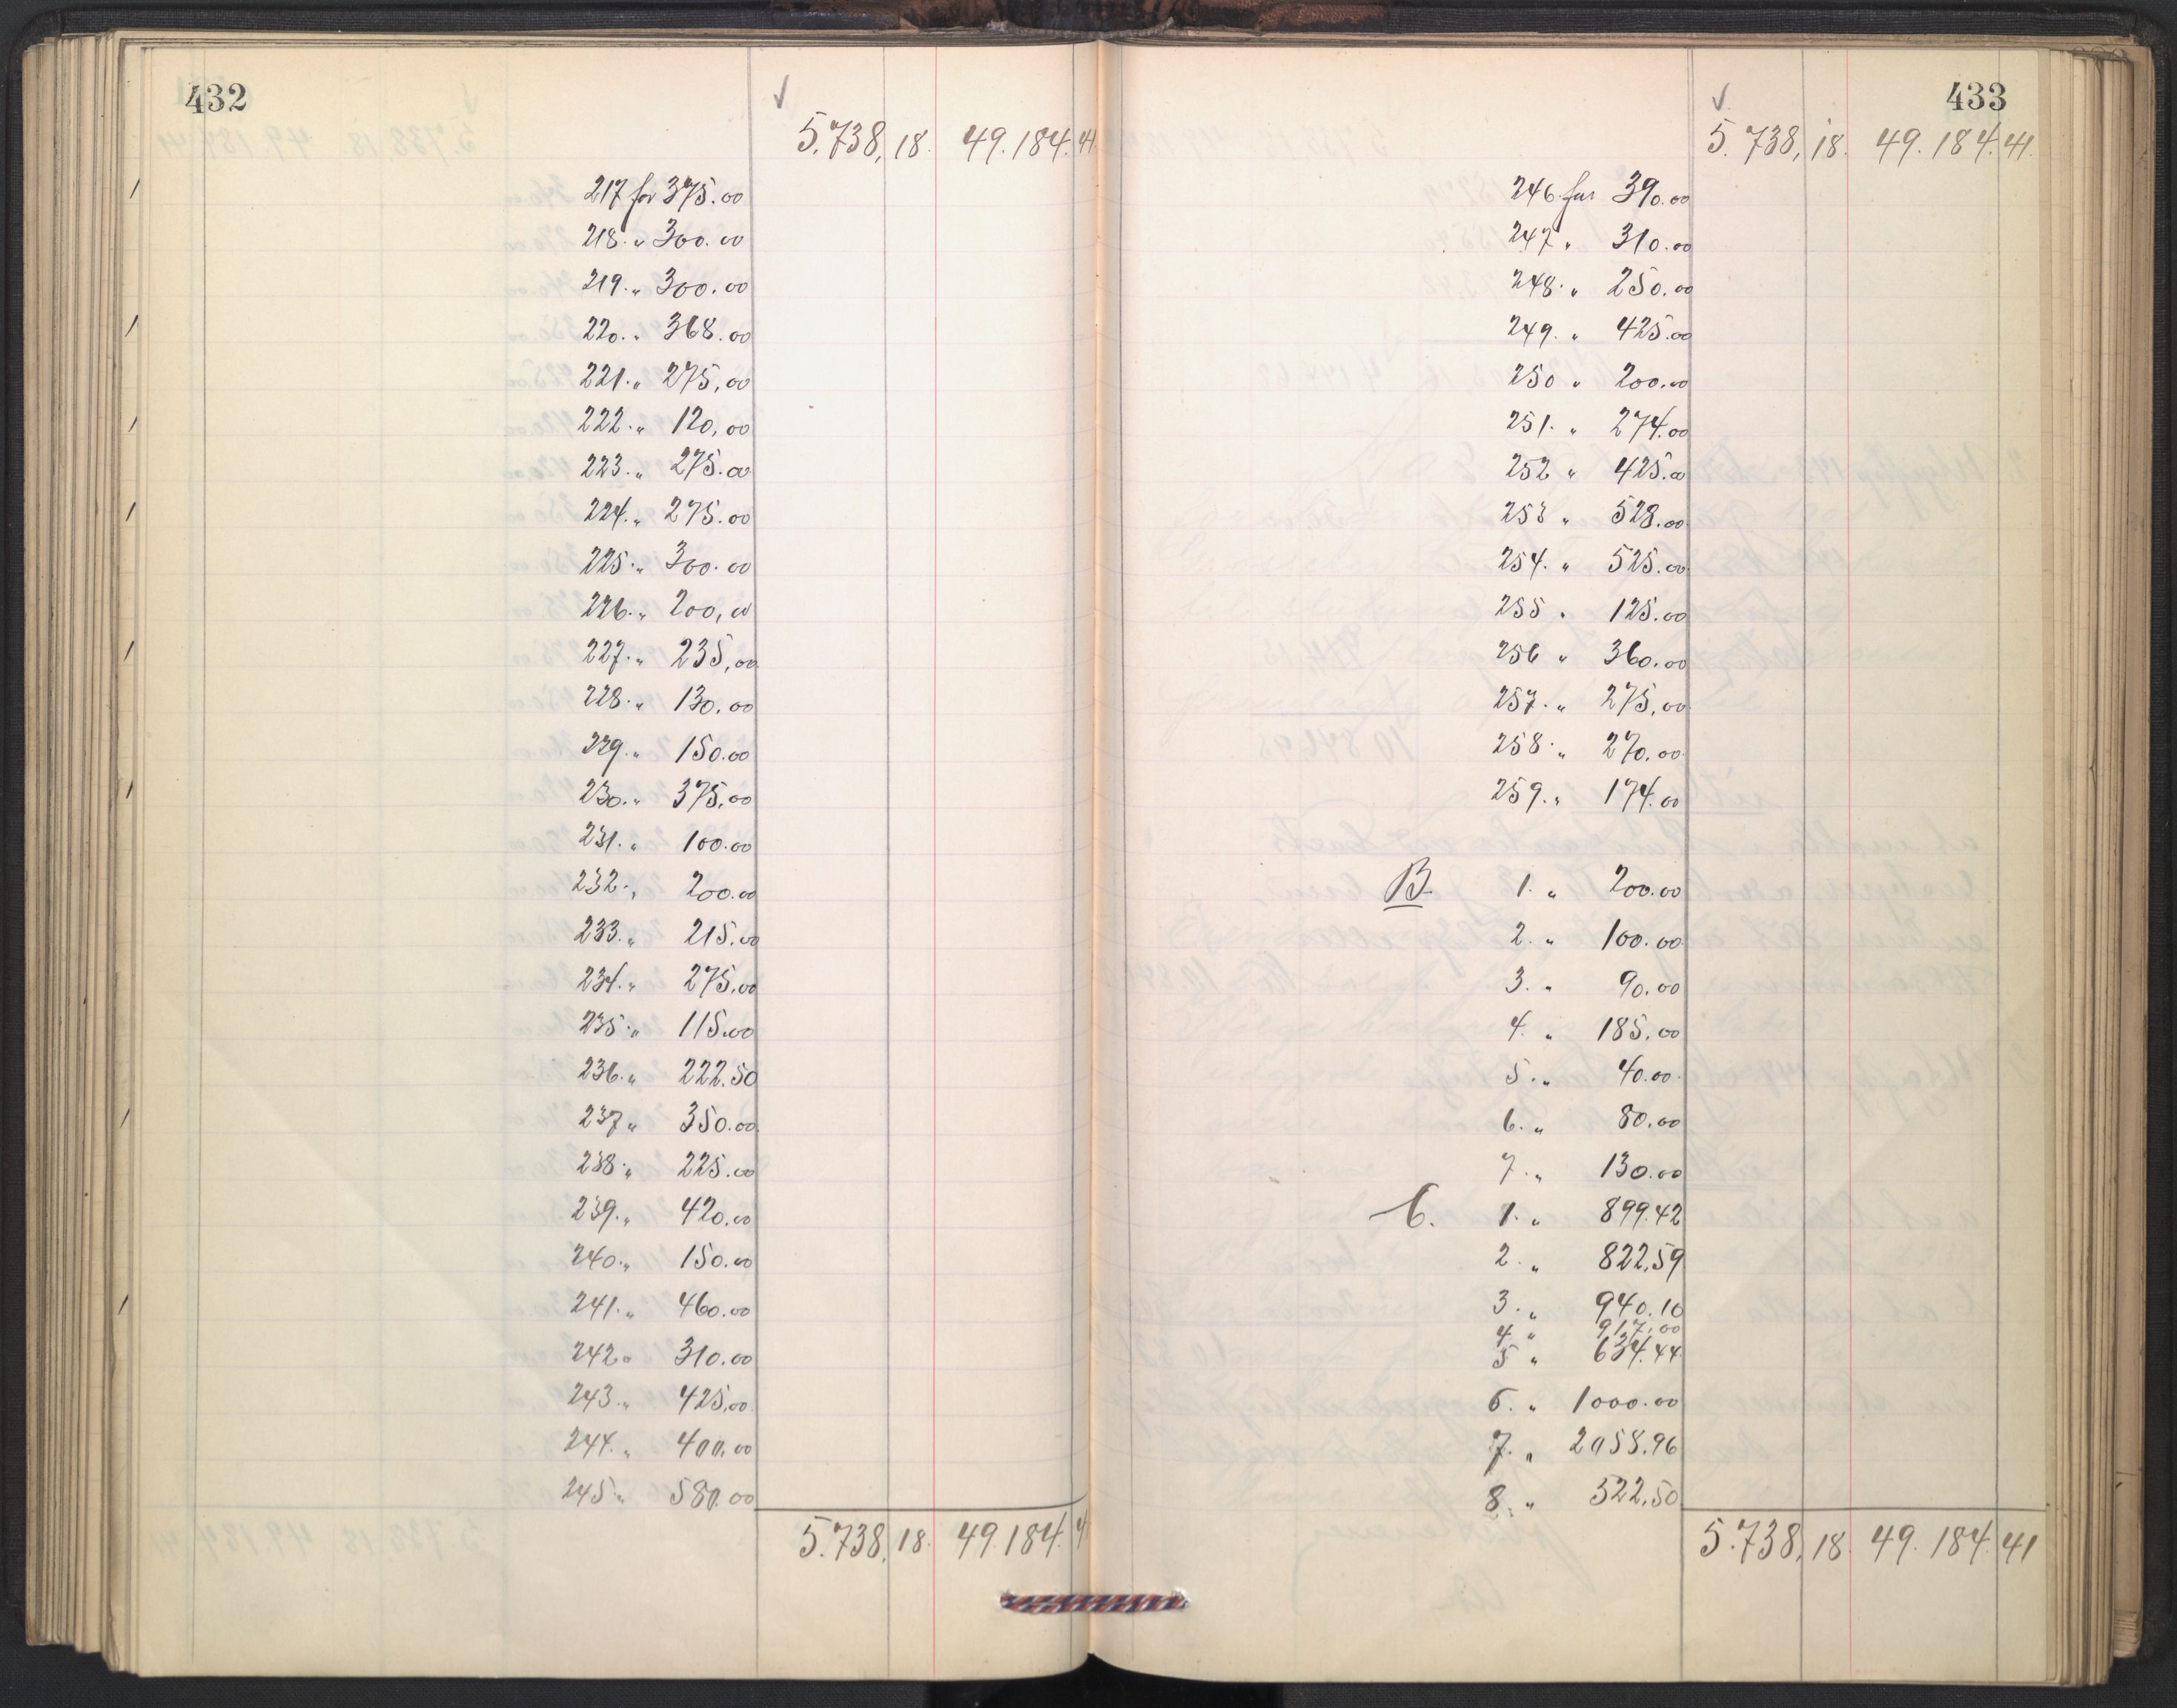 432
✓
5.738,18. 49.184.41
217 for 375.00
218. " 300.00
219. " 300.00
220. " 368.00
221. " 275,00
222. " 120,00
223. " 275.00
224. " 275.00
225. " 300.00
226. " 200,00
227. " 235,00
228. " 130.00
229. " 150.00
230. " 375,00
231. " 100.00
232. " 200.00
233. " 215.00
234. " 275.00
235. " 115.00
236. " 222.50
237 " 350.00
238. " 225.00
239. " 420.00
240. " 150.00
241. " 460.00
242 " 310.00
243. " 425,00
244. " 400,00
245. " 580.00
5.738,18. 49.184.4
433
✓
5.738,18. 49.184.41
246. for 390.00
247 " 310.00
248. " 250.00
249. " 425.00
250 " 200.00
251. " 274.00
252 " 425.00
253 " 528.00
254. " 525.00
255 " 125.00
256 " 360.00
257. " 275,00
258. " 270.00
259. " 174.00
B. 1. " 200.00
2. " 100.00
3. " 90.00
4. " 185.00
5. " 40.00
6. " 80.00
7. " 130.00
C. 1. " 899.42
2. " 822,59
3. " 940.10
4 " 917.00
5 " 634.44
6. " 1000.00
7. " 2058.96
8. " 522,50
5.738,18. 49.184.41